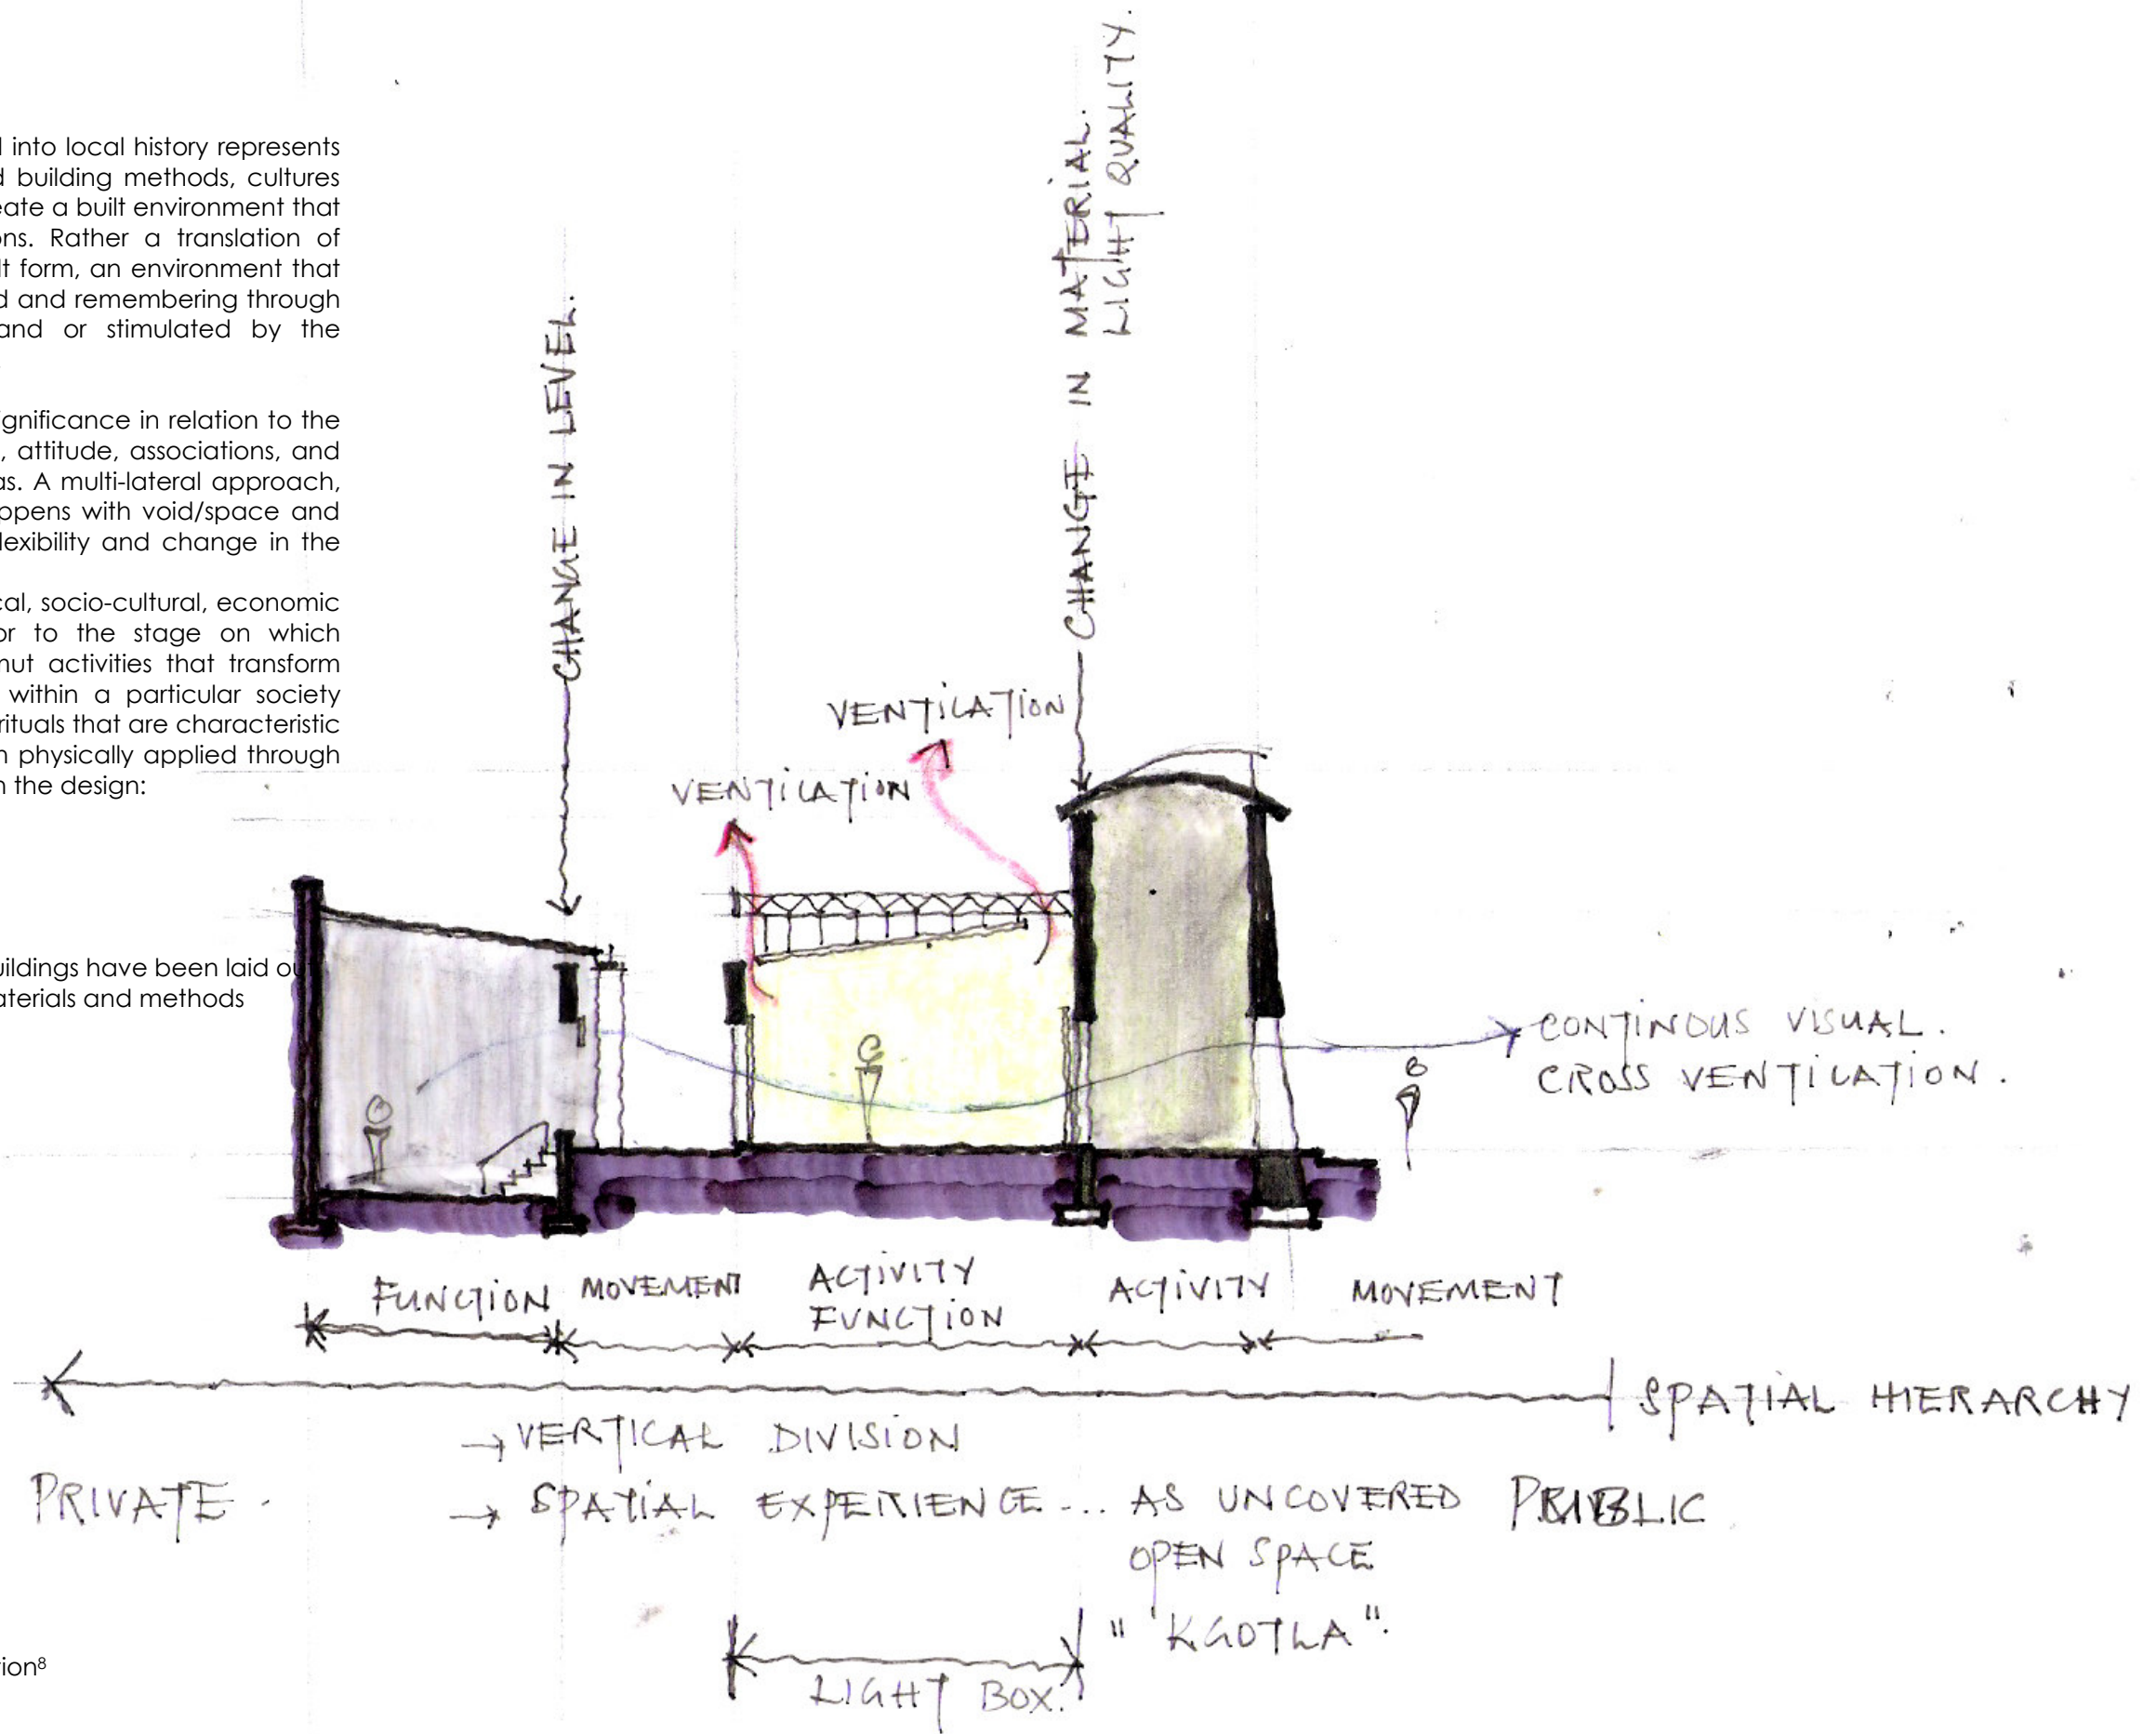 into local history represents
building methods, cultures
eate a built environment that
ons. Rather a translation of
lt form, an environment that
d and remembering through
and or stimulated by the
gnificance in relation to the
, attitude, associations, and
as. A multi-lateral approach,
ppens with void/space and
lexibility and change in the
cal, socio-cultural, economic
or to the stage on which
nut activities that transform
within a particular society
rituals that are characteristic
n physically applied through
n the design:
uildings have been laid ou
aterials and methods
tion8
CHANGE IN LEVEL.
CHANGE IN MATERIAL.
LIGHT QUALITY.
VENTILATION
VENTILATION
CONTINOUS VISUAL.
CROSS VENTILATION.
FUNCTION
MOVEMENT
ACTIVITY
FUNCTION
ACTIVITY
MOVEMENT
SPATIAL HIERARCHY
→ VERTICAL DIVISION
PRIVATE.
→ SPATIAL EXPERIENCE... AS UNCOVERED
OPEN SPACE
"KGOTLA".
PUBLIC
LIGHT BOX.